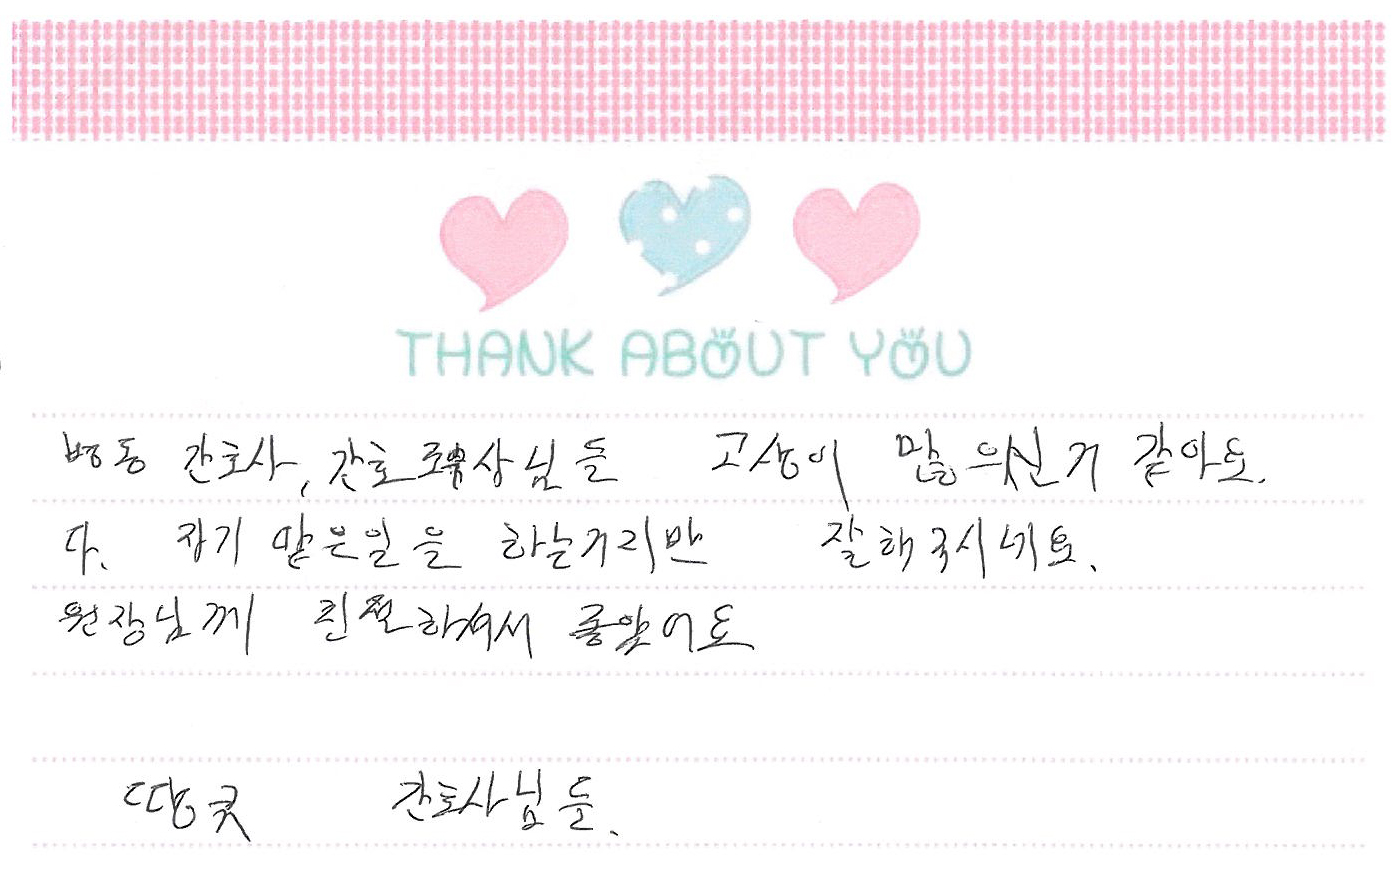 THANK ABOUT YOU
병동 간호사, 간호 님들 고생이 많으신거 같아요.
다. 자기 맡은일을 하는거지만 잘해주시네요.
원장님께 친절하셔서 좋았어요
땅콩 간호사님들.